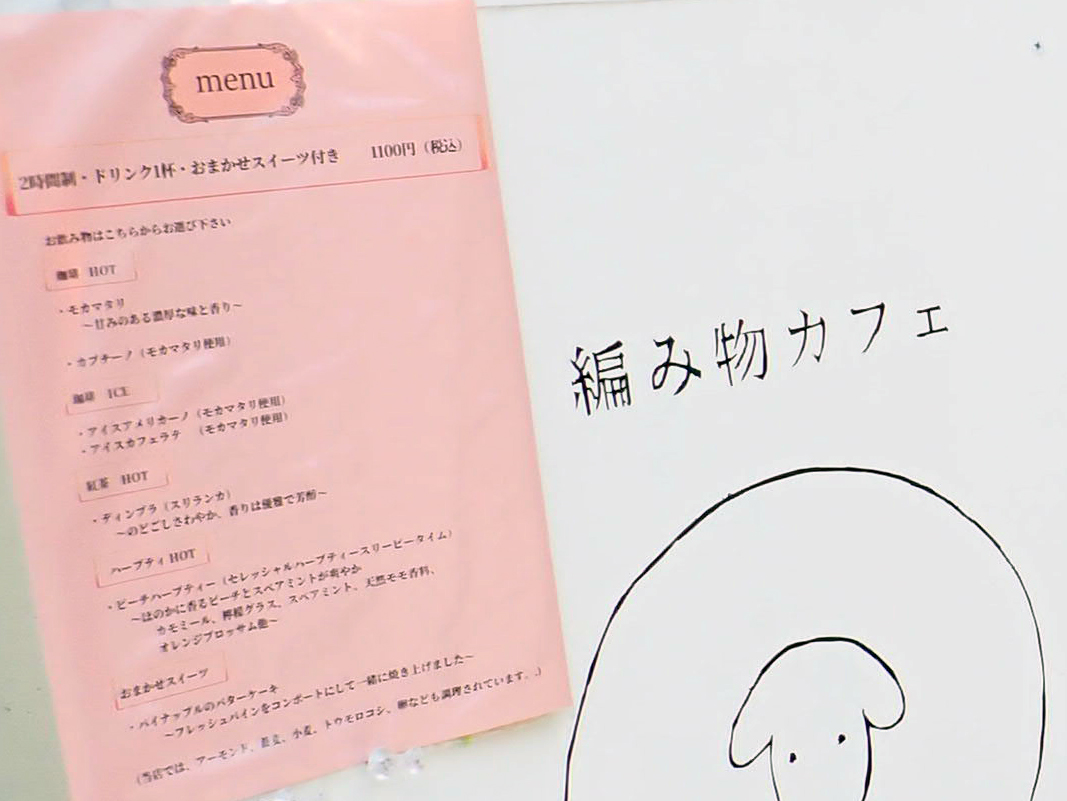 menu
2時間制・ドリンク1杯・おまかせスイーツ付き 1100円（税込）
お飲み物はこちらからお選び下さい
珈琲 HOT
・モカマタリ
～甘みのある濃厚な味と香り～
・カプチーノ（モカマタリ使用）
珈琲 ICE
・アイスアメリカーノ（モカマタリ使用）
・アイスカフェラテ （モカマタリ使用）
紅茶 HOT
・ディンブラ（スリランカ）
～のどごしさわやか、香りは優雅で芳醇～
ハーブティ HOT
・ピーチハーブティー（セレッシャルハーブティースリーピータイム）
～ほのかに香るピーチとスペアミントが爽やか
カモミール、檸檬グラス、スペアミント、天然モモ香料、
オレンジブロッサム他～
おまかせスイーツ
・パイナップルのバターケーキ
～フレッシュパインをコンポートにして一緒に焼き上げました～
（当店では、アーモンド、小麦、トウモロコシ、卵なども調理されています。）
編み物カフェ